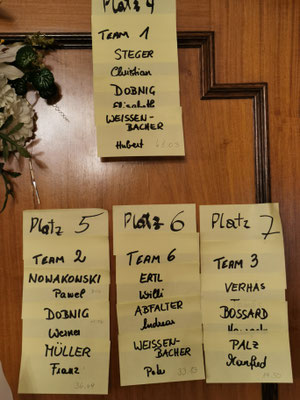 Platz 4
TEAM 1
STEGER
Christian
DOBNIG
Elisabeth
WEISSEN-
BACHER
Hubert
Platz 5
TEAM 2
NOWAKOWSKI
Pawel
DOBNIG
Werner
MÜLLER
Franz
Platz 6
TEAM 6
ERTL
Willi
ABFALTER
Andreas
WEISSEN-
BACHER
Platz 7
TEAM 3
VERHAS
BOSSARD
PALZ
Manfred